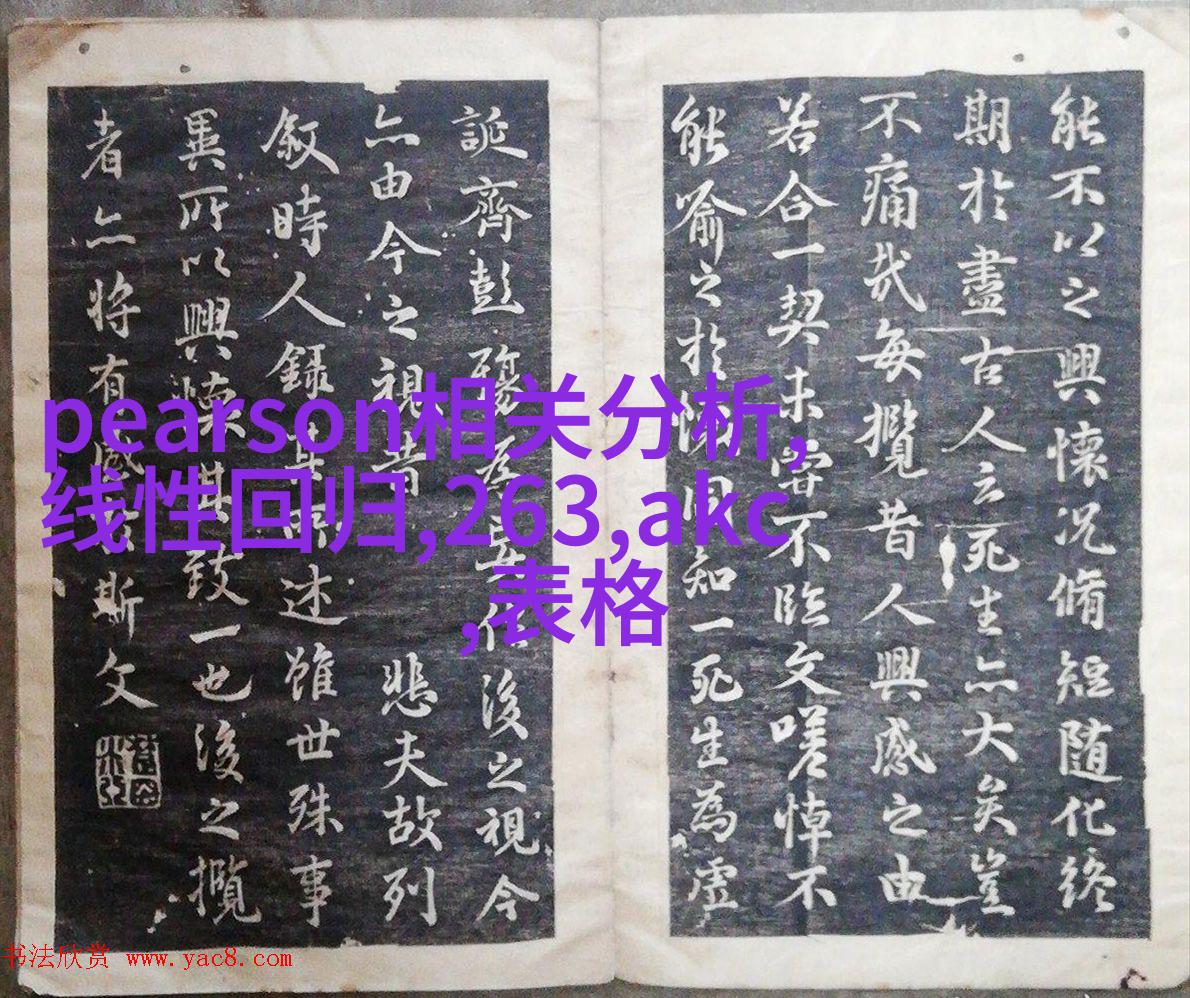 能不以之興懷况脩短随化終
期於盡古人云死生亦大矣豈
不痛哉每攬昔人興感之由
若合一契未甞不臨文嗟悼不
能喻之於懷固知一死生為虚
誕齊彭殤為妄作後之視今
亦由今之視昔悲夫故列
叙時人録其所述雖世殊事
異所以興懷其致一也後之攬
者亦将有感於斯文
pearson相关分析,
线性回归,263,akc
,表格
书法欣赏 www.yac8.com